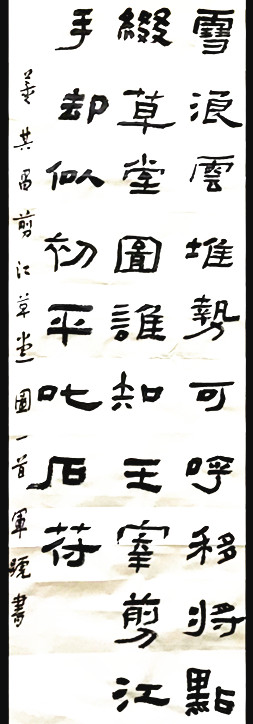 雪浪雲堆勢可呼移將點
綴草堂圖誰知王宰剪江
手却似初平叱石符
董其昌剪江草堂圖一首軍曉書